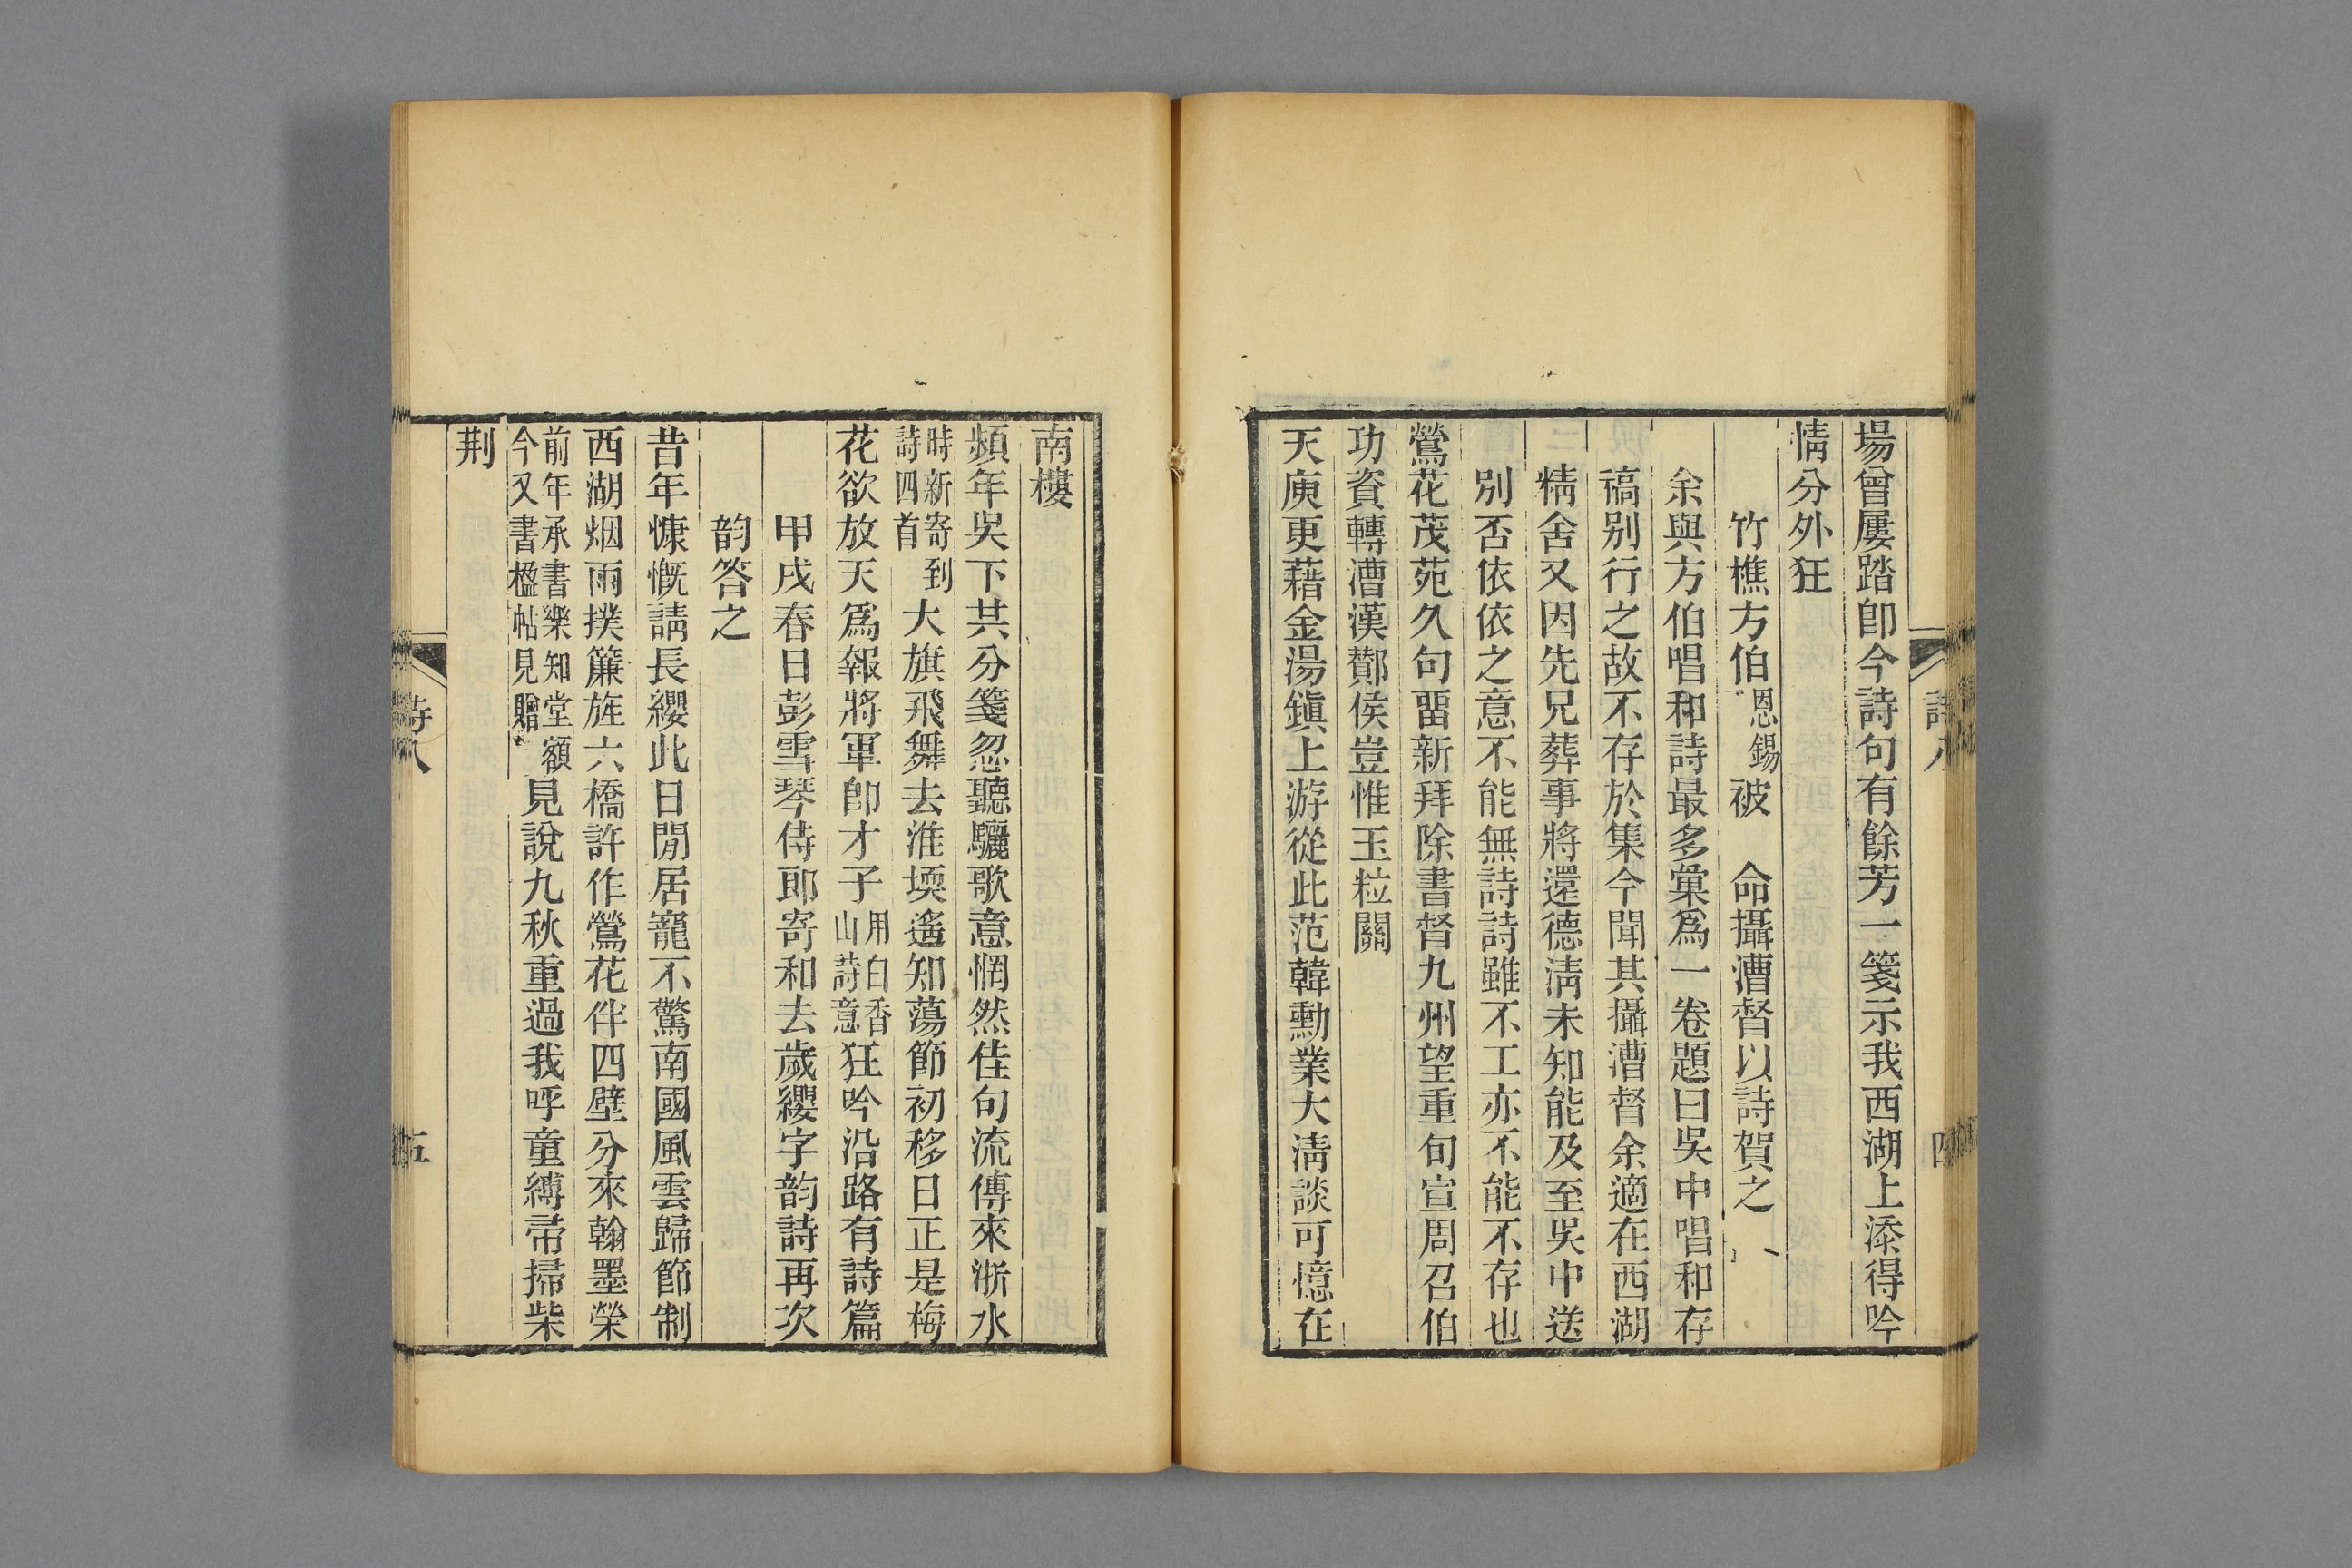 場曾屢踏卽今詩句有餘芳一箋示我西湖上添得吟
情分外狂
竹樵方伯恩錫被　命攝漕督以詩賀之
余與方伯唱和詩最多彙爲一卷題曰吳中唱和存
稿别行之故不存於集今聞其攝漕督余適在西湖
精舍又因先兄葬事將還德淸未知能及至吳中送
别否依依之意不能無詩詩雖不工亦不能不存也
鶯花茂苑久句留新拜除書督九州望重旬宣周召伯
功資轉漕漢酇侯豈惟玉粒關
天庾更藉金湯鎭上游從此范韓勳業大淸談可憶在
南樓
頻年吳下共分箋忽聽驪歌意惘然佳句流傳來浙水
時新寄到詩四首大旗飛舞去淮堧遙知蕩節初移日正是梅
花欲放天爲報將軍卽才子用白香山詩意狂吟沿路有詩篇
甲戌春日彭雪琴侍郞寄和去歲纓字韵詩再次
韵答之
昔年慷慨請長纓此日閒居寵不驚南國風雲歸節制
西湖烟雨撲簾旌六橋許作鶯花伴四壁分來翰墨榮
前年承書樂知堂額今又書楹帖見贈見說九秋重過我呼童縛帚掃柴
荆
詩八
四
詩八
五